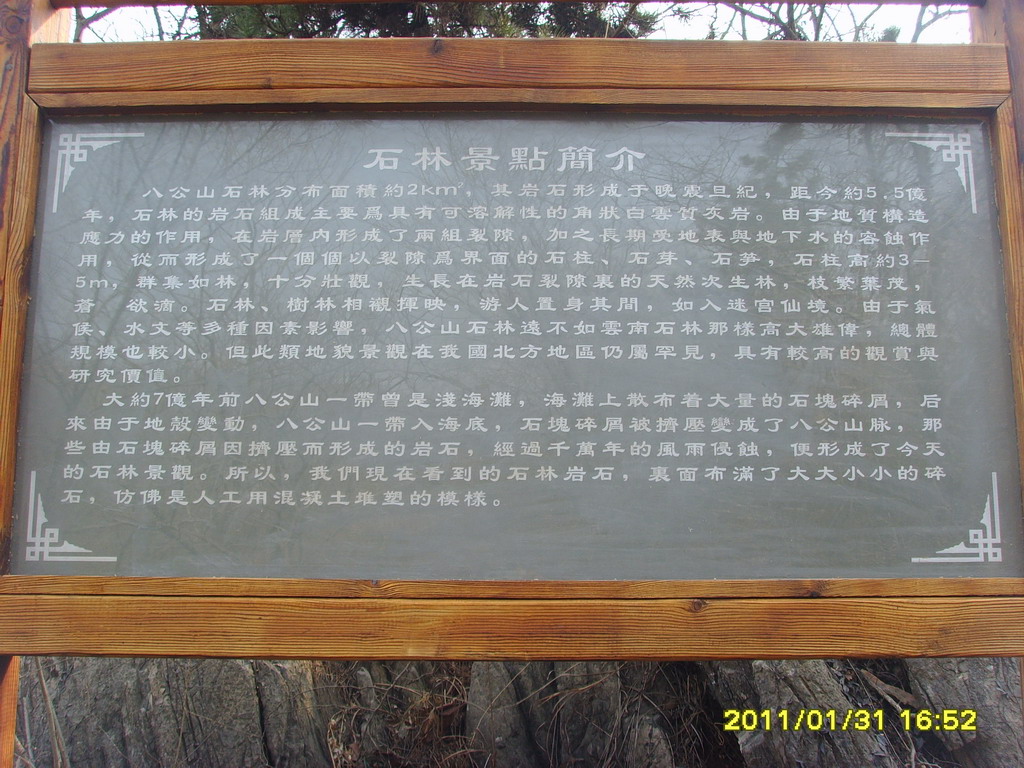 石林景點簡介
八公山石林分布面積約2km²，其岩石形成于晚震旦紀，距今約5.5億
年，石林的岩石組成主要爲具有可溶解性的角狀白雲質灰岩。由于地質構造
應力的作用，在岩層内形成了兩組裂隙，加之長期受地表與地下水的容蝕作
用，從而形成了一個個以裂隙爲界面的石柱、石芽、石笋，石柱高約3-
5m，群集如林，十分壯觀，生長在岩石裂隙裏的天然次生林，枝繁葉茂，
蒼 欲滴。石林、樹林相襯揮映，游人置身其間，如入迷宫仙境。由于氣
侯、水文等多種因素影響，八公山石林遠不如雲南石林那樣高大雄偉，總體
規模也較小。但此類地貌景觀在我國北方地區仍屬罕見，具有較高的觀賞與
研究價值。
大約7億年前八公山一帶曾是淺海灘，海灘上散布着大量的石塊碎屑，后
來由于地殼變動，八公山一帶入海底，石塊碎屑被擠壓變成了八公山脉，那
些由石塊碎屑因擠壓而形成的岩石，經過千萬年的風雨侵蝕，便形成了今天
的石林景觀。所以，我們現在看到的石林岩石，裏面布滿了大大小小的碎
石，仿佛是人工用混凝土堆塑的模樣。
2011/01/31 16:52